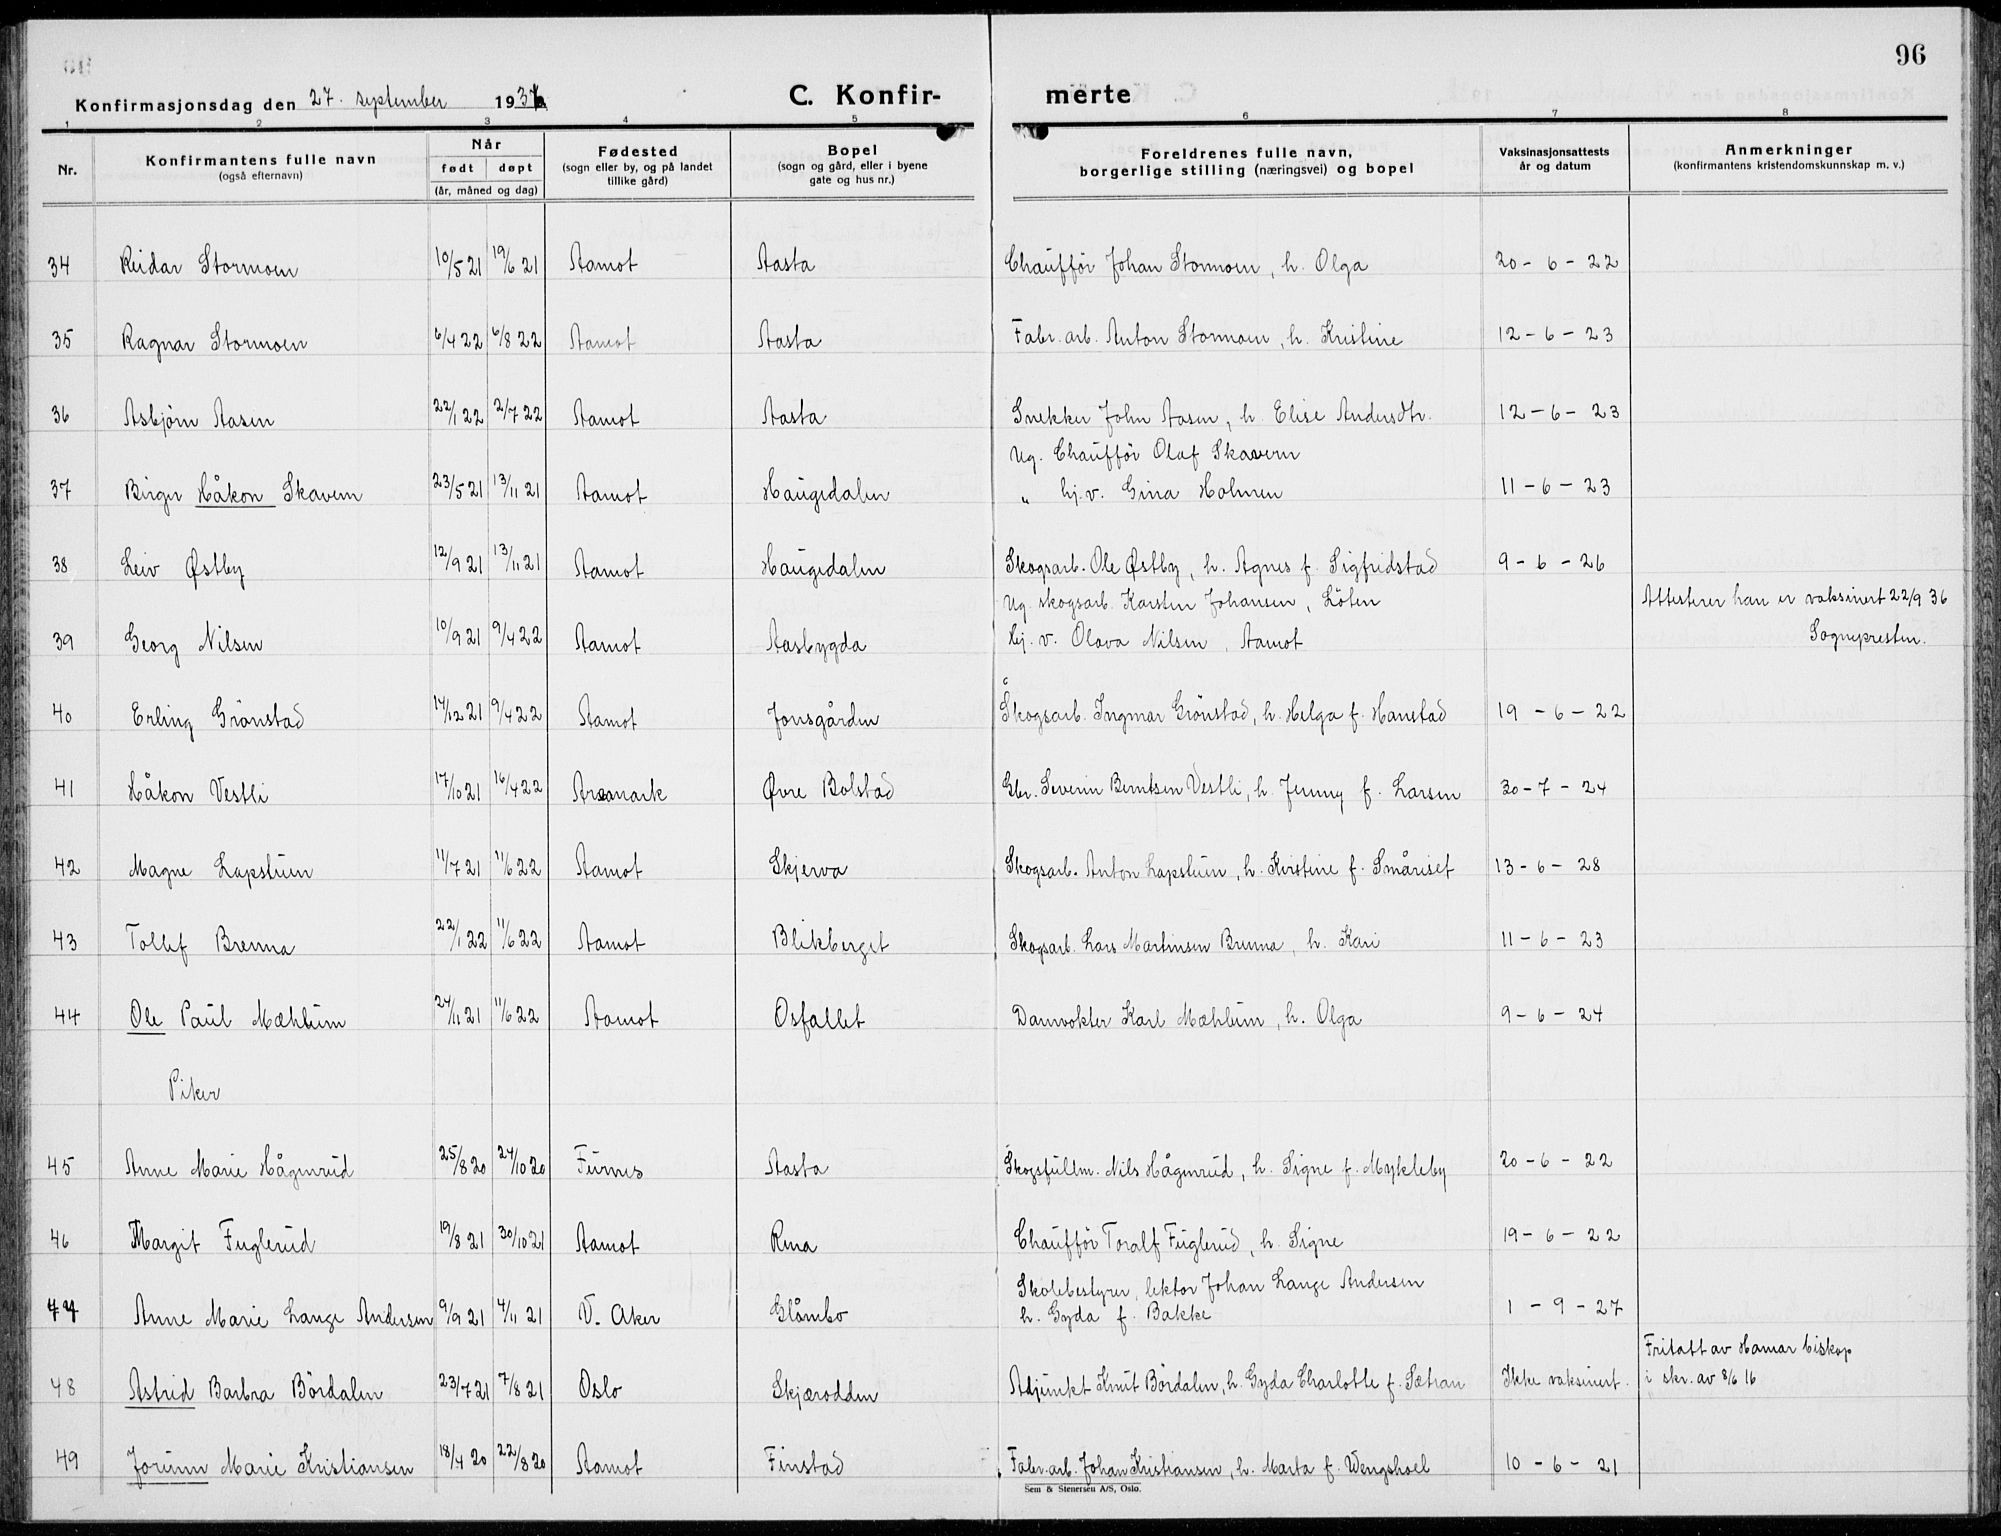 96
Konfirmasjonsdag den 27. september 1936
C. Konfir-
merte
1 2 3 4 5 6 7 8
Nr.
Konfirmantens fulle navn
(også efternavn)
Når
født døpt
(år, måned og dag)
Fødested
(sogn eller by, og på landet
tillike gård)
Bopel
(sogn og gård, eller i byene
gate og hus nr.)
Foreldrenes fulle navn,
borgerlige stilling (næringsvei) og bopel
Vaksinasjonsattests
år og datum
Anmerkninger
(konfirmantens kristendomskunnskap m. v.)
34 Reidar Stormoen 10/5 21 19/6 21 Aamot Aasta Chaufför Johan Stormoen, h. Olga 20-6-22
35 Ragnar Stormoen 6/4 22 6/8 22 Aamot Aasta Fabr. arb. Anton Stormoen, h. Kristine 12-6-23
36 Asbjørn Aasen 22/1 22 2/7 22 Aamot Aasta Snekker John Aasen, h. Elise Andersdtr. 12-6-23
Ug. Chaufför Olaf Skavern
37 Birger Håkon Skavern 23/5 21 13/11 21 Aamot Haugedalen " hj. v. Gina Holmen 11-6-23
38 Leiv Østby 12/9 21 13/11 21 Aamot Haugedalen Skogsarb. Ole Østby, h. Agnes f. Sigfridstad 9-6-26
Ug. skogsarb. Karsten Johansen, Löten Attesterer han er vaksinert 22/9 36
39 Georg Nilsen 10/9 21 9/4 22 Aamot Aasbygda Hj. v. Olava Nilsen, Aamot Sognepresten.
40 Erling Grönstad 14/12 21 9/4 22 Aamot Jonsgården Skogsarb. Ingmar Grönstad, h. Helga f. Hanstad 19-6-22
41 Håkon Vestli 17/10 21 16/4 22 Aremark Øvre Bolstad Gbr. Severin Berntsen Vestli, h. Jenny f. Larsen 30-7-24
42 Magne Lapstuen 11/7 21 11/6 22 Aamot Skjerva Skogsarb. Anton Lapstuen, h. Kirstine f. Småriset 13-6-28
43 Tollef Brenna 22/1 22 11/6 22 Aamot Blikberget Skogsarb. Lars Martinsen Brenna, h. Kari 11-6-23
44 Ole Paul Mæhlum 24/11 21 11/6 22 Aamot Osfallet Damvokter Karl Mæhlum, h. Olga 9-6-24
Piker
45 Anne Marie Hågenrud 25/8 20 24/10 20 Furnes Aasta Skogsfullm. Nils Hågenrud, h. Signe f. Mykleby 20-6-22
46 Margit Fuglerud 19/8 21 30/10 21 Aamot Rena Chauffør Toralf Fuglerud, h. Signe 19-6-22
Skolebestyrer, lektor Johan Lange Andersen
47 Anne Marie Lange Andersen 9/9 21 4/11 21 V. Aker Glåmbo h. Gyda f. Bakke 1-9-27
Fritatt av Hamar biskop
48 Astrid Barbra Bördalen 23/7 21 7/8 21 Oslo Skjærodden Adjunkt Knut Bördalen, h. Gyda Charlotte f. Sætran Ikke vaksinert. i skr. av 8/6 16
49 Jorunn Marie Kristiansen 18/4 20 22/8 20 Aamot Finstad Fabr. arb. Johan Kristiansen, h. Marta f. Wengshoel 10-6-21
Sem & Stenersen A/S, Oslo.